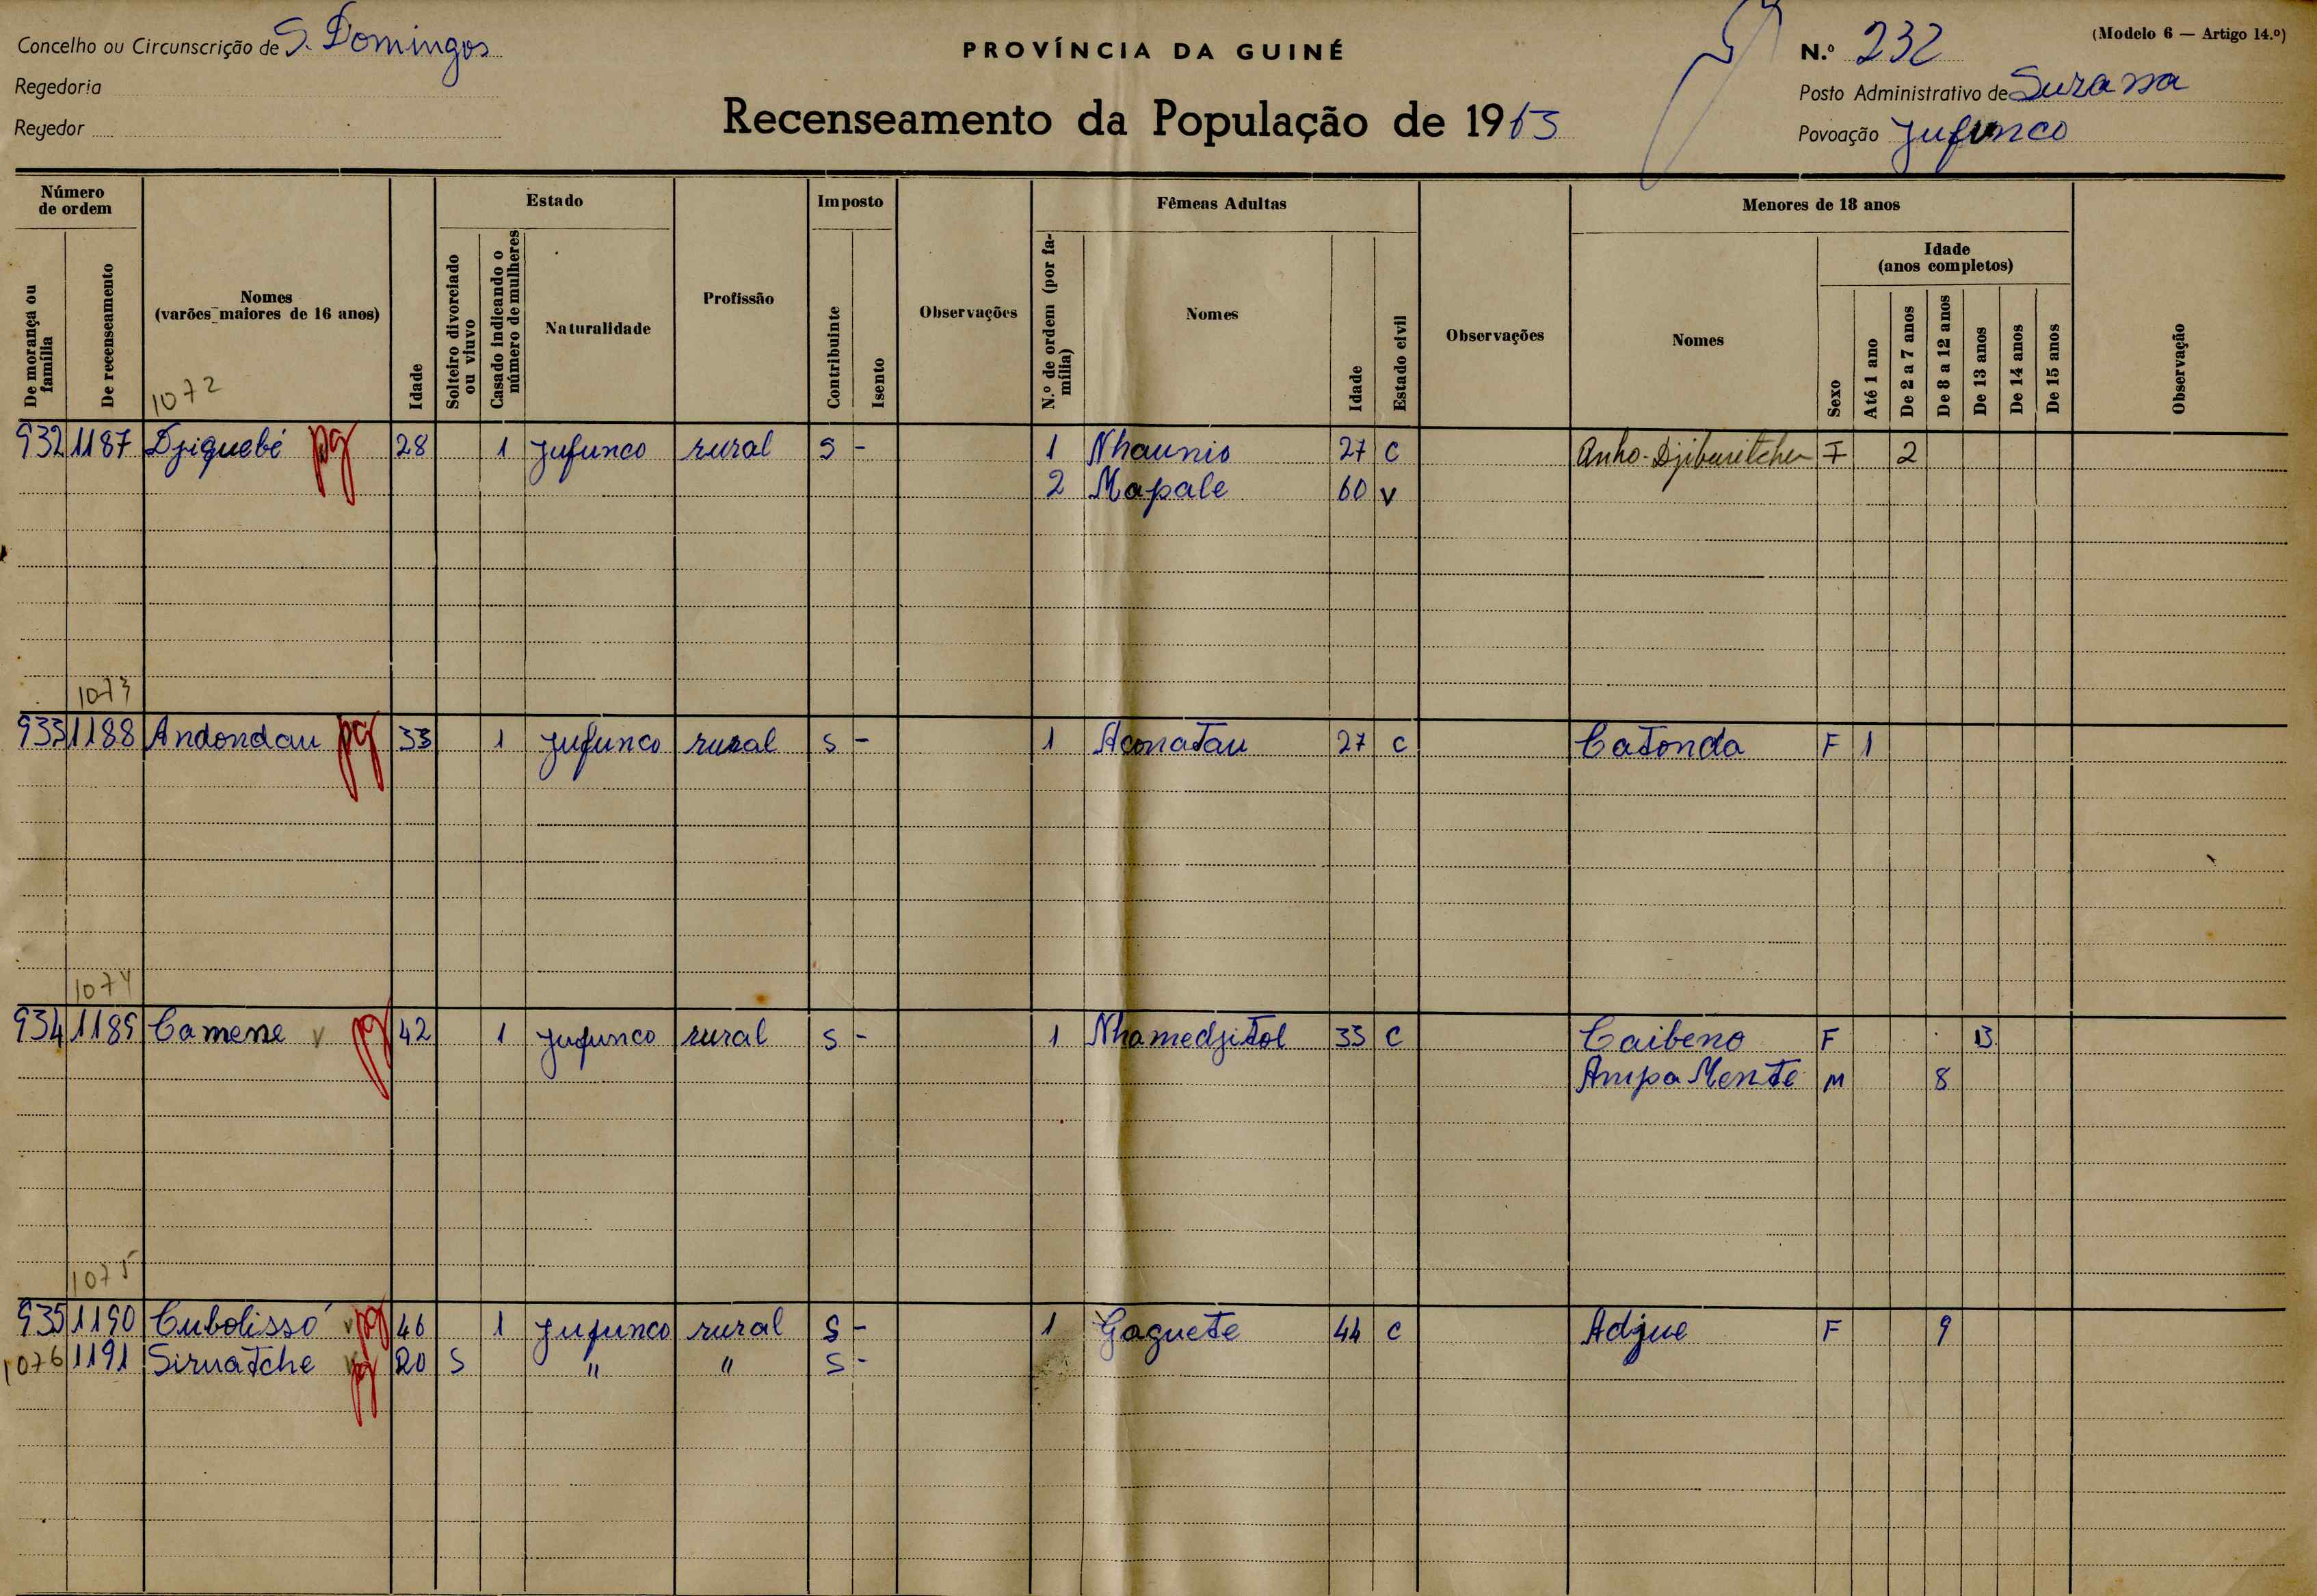 Concelho ou Circunscrição de S. Domingos
Regedoria
Regedor
PROVÍNCIA DA GUINÉ
Recenseamento da População de 1963
(Modelo 6 — Artigo 14.º)
N.º 232
Posto Administrativo de Suzana
Povoação Jufunco
Número de ordem
De morança ou família
De recenseamento
Nomes (varões maiores de 16 anos)
Idade
Estado
Solteiro divorciado ou viuvo
Casado indicando o número de mulheres
Naturalidade
Profissão
Imposto
Contribuinte
Isento
Observações
Fêmeas Adultas
N.º de ordem (por família)
Nomes
Idade
Estado civil
Observações
Menores de 18 anos
Nomes
Sexo
Idade (anos completos)
Até 1 ano
De 2 a 7 anos
De 8 a 12 anos
De 13 anos
De 14 anos
De 15 anos
Observação
1072
932 1187 Djiquebé pg 28 1 Jufunco rural S - 1 Nhaunio 27 C Anho-Djibuitcher F 2
2 Mapale 60 V
1073
933 1188 Andondau pg 33 1 Jufunco rural S - 1 Aconatau 27 C Catonda F 1
1074
934 1189 Camene v pg 42 1 Jufunco rural S - 1 Nhamedjitol 33 C Caibeno F 13
Ampa Mente M 8
1075
935 1190 Cubolissó v pg 46 1 Jufunco rural S - 1 Gaguete 44 C Adjue F 9
1076 1191 Siruatche v pg 20 S " " S -